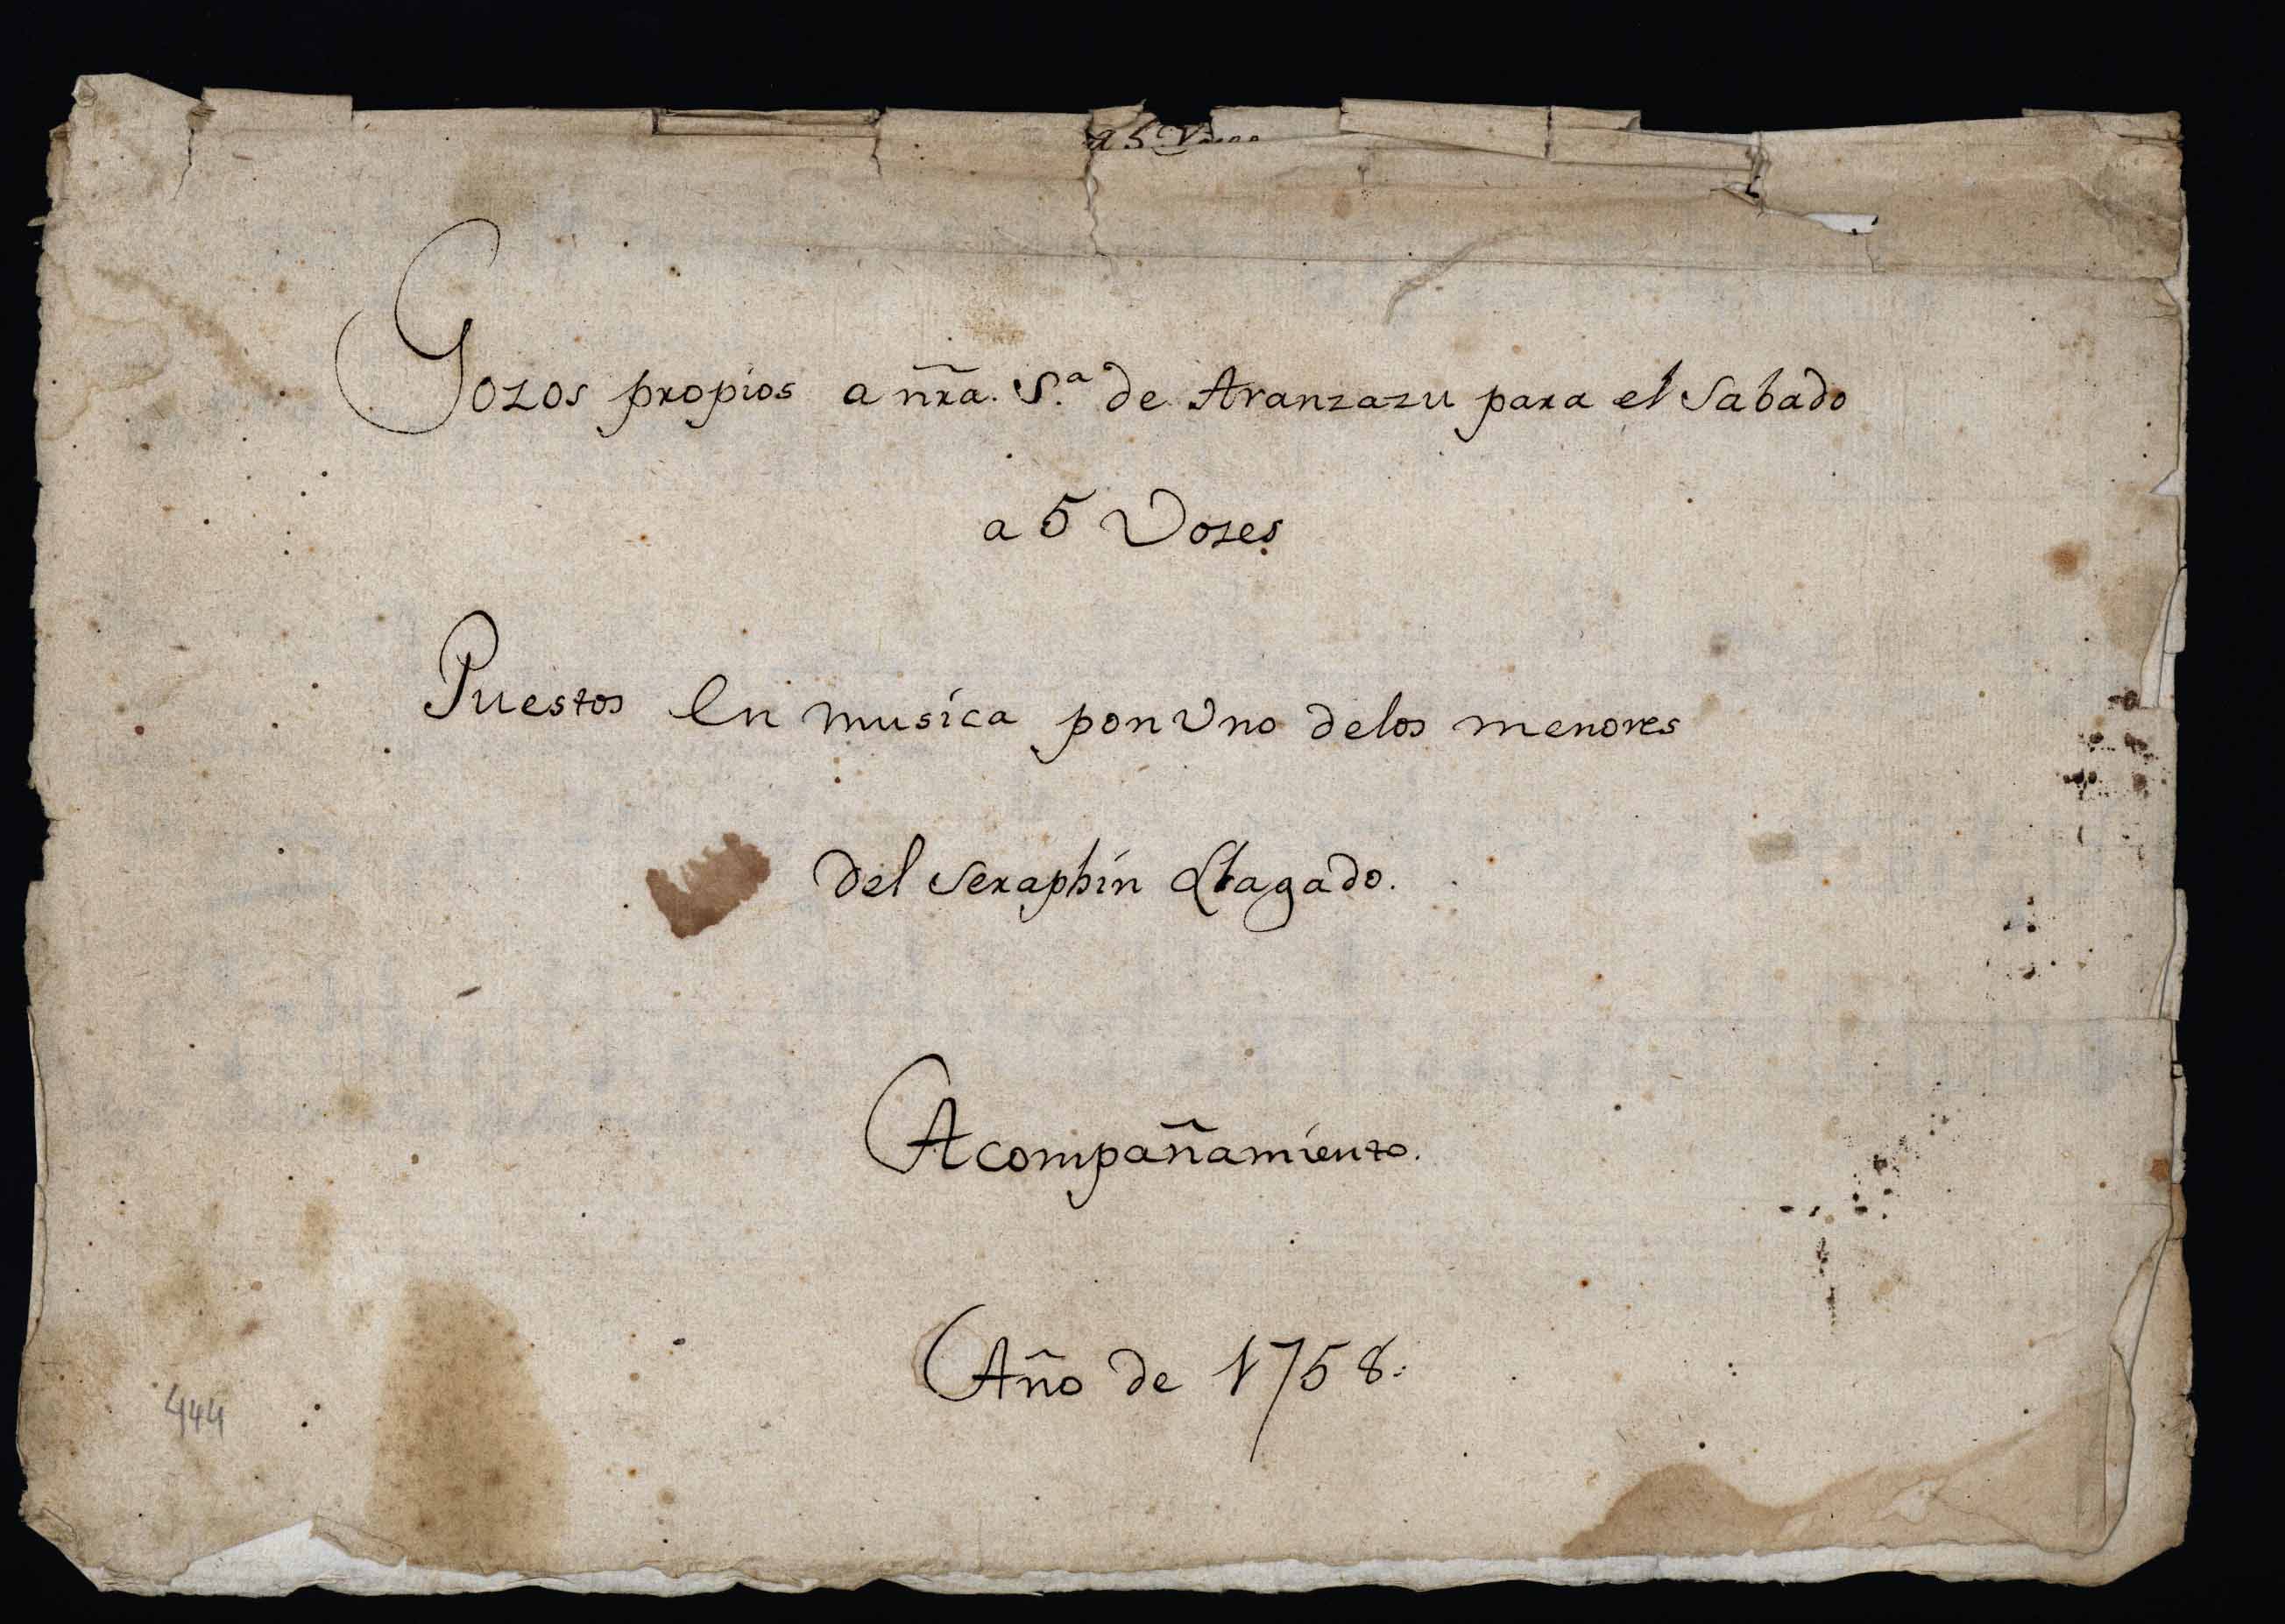 a 5 Vozes
Gozos propios a ñra. S.ª de Aranzazu para el Sabado
a 5 Vozes
Puestos en musica por Vno delos menores
del Seraphin Llagado.
Acompañamiento.
Año de 1758.
444